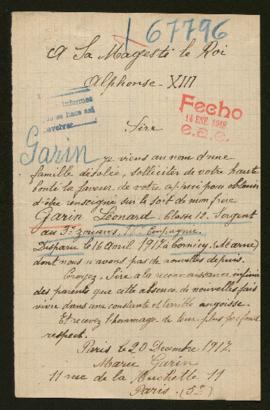 67796
A Sa Magesté le Roi
Alphonse XIII
informes
Fecho
14 ENE. 1918
Sire
Garin
je viens au nom d'une
famille désolée, solliciter de votre haute
bonté la faveur de votre appui pour obtenir
d'être renseigné sur le sort de mon frère
Garin Léonard. Classe 12. Sergent
au 3e zouaves, Compagnie
Disparu le 16 Avril 1917 à Cormicy (Marne)
dont nous n'avons pas de nouvelles depuis.
Croyez, Sire à la reconnaissance infinie
des parents que cette absence de nouvelles fait
vivre dans une constante et terrible angoisse.
Et recevez l'hommage de leur plus profond
respect.
Paris le 20 Décembre 1917.
Marie Garin
11 rue de la Huchette 11
Paris (5e)